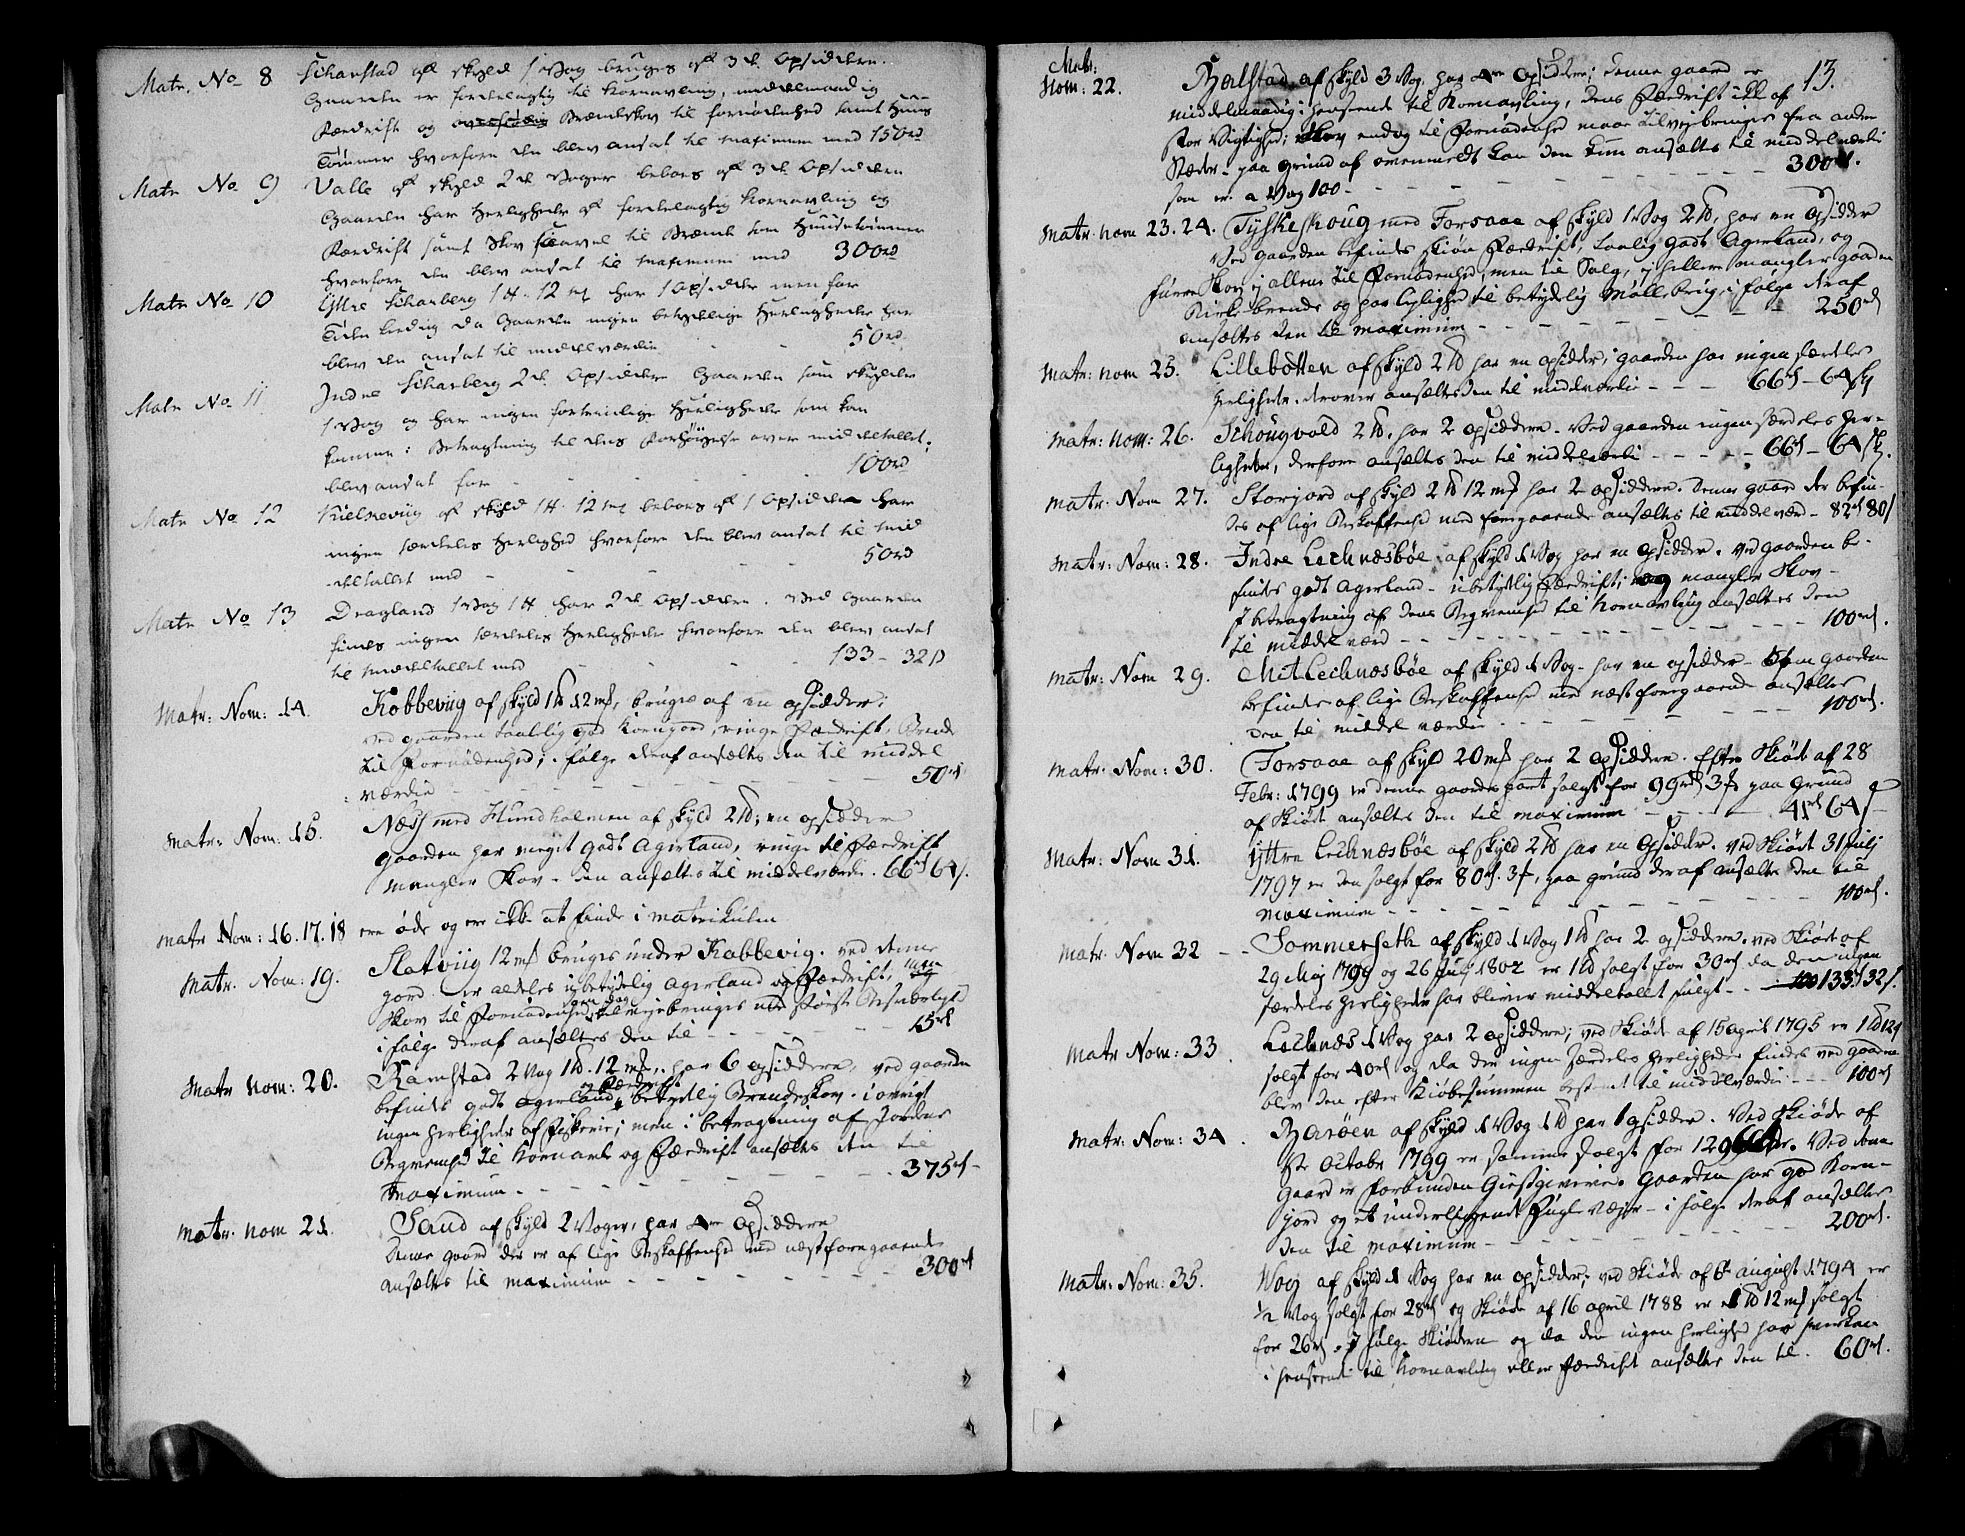 Matr. No 8 Schanstad af skyld 1 Vog bruges af 3de Opsiddere.
Gaarden er fordelagtig til Kornavling, middelmaadig
Fædrift og Brændeskov til fornødenhed samt Huus
Tømmer hvorfore den blev ansat til maximum med 150rd
Matr No 9 Valle af skyld 2de Voger beboes af 3de Opsiddere
Gaarden har Herligheder af fordelagtig Kornavling og
Fædrift samt Skov saavel til Brænde som Huustømmer
hvorfore den blev ansat til maximum med 300rd
Matr No 10 Yttre Schanberg 1 H. 12 mk har 1 Opsidder men for
Tiden ledig da Gaarden ingen betydelige Herligheder har
blev den ansat til middelværdie - - 50rd
Matr No 11 Indre Schanberg 2de Opsiddere Gaarden som skylder
1 Vog og har ingen fortrinlige Herligheder som kan
komme i Betragtning til dens Forhøyelse over middeltallet.
blev ansat for - - - 100rd
Matr No 12 Kielneviig af skyld 1 H. 12 mk beboes af 1 Opsidder har
ingen særdeles Herlighed hvorfore den blev ansat til mid
deltallet med - - - 50rd
Matr No 13 Dragland 1 Vog 1 H har 2de Opsiddere. Ved Gaarden
findes ingen særdeles Herligheder hvorfore den blev ansat
til Middeltallet med - - - 133 - 32 s
Matr: Nom: 14. Kobbeviig af skyld 1 lb 12 mk, bruges af en opsidder;
ved gaarden taalelig god Kornjord, ringe Fædrift, Brende
til Fornødenhed; i følge deraf ansættes den til middel
værdie - - - 50rd
matr: Nom: 15. Næss med Hundholmen af skyld 2 lb; en opsidder
gaarden har meget godt Agerland, ringe til Fædrift
mangler Skov - den ansættes til middelværdie. 66rd 64 s.
matr Nom: 16. 17. 18 ere øde og er ikke at finde i matrikulen
Matr. Nom: 19. Slatviig 12 mk bruges under Kabbevig. ved denne
gord er aldeles ubetydelig agerland og Fædrift, ingen
Skov til Fornødenhed, tilvejebringes med største Besværlighed
i følge deraf ansættes den til - - - 15rd
Matr Nom: 20. Ramstad 2 Vog 1 lb. 12 mk, har 6 opsiddere, ved gaarden
befindes godt agerland, og Fædrift betydelig Brendeskov. i øvrigt
ingen herligheder af Fiskerie; men i betragtning af Jordens
Begvemhed til Kornavl og Fædrift ansættes den til
maximum - - - 375rd
matr. nom 21. Sand af skyld 2 Voger, har 4re Opsiddere
denne gaard der er af lige Beskaffenhed med næstforegaaende
ansættes til maximum - - - 300rd
13.
Matr:
Nom: 22. Balstad af skyld 3 Vog, har 4re Opsiddere; denne gaard er
middelmaadig i henseende til Kornavling, dens Fædrift ikke af
stor Vigtighed; Skov endog til Fornødenhed maae tilvejebringes fra andre
Stæder - paa grund af ovenmeldte kan den kun ansættes til middelværdie
som er a Vog 100 - - - 300rd.
Matr. nom 23. 24. Tyskeskoug med Forsaae af skyld 1 Vog 2 lb, har en opsidder
Ved gaarden befindes skiøn Fædrift, taalelig godt Agerland, og
Furre Skov ej allene til Fornødenhed, men til Salg, ej hellere mangler gaarden
Birkebrende og har lejlighed til betydelig Mølle brug, i følge deraf
ansættes den til maximum - - - 250rd
Matr: nom 25. Lillebotten af skyld 2 lb har en opsidder, gaarden har ingen særdeles
herligheder. derover ansættes den til middelværdie - - - 66rd - 64 sk
matr: nom: 26. Schougvold 2 lb, har 2 opsiddere. Ved gaarden ingen særdeles her-
ligheder, derfore ansættes den til middelværdie - - - 66rd - 64 sk.
matr: Nom 27. Storjord af skyld 2 lb 12 mk har 2 opsiddere. Denne gaard der befin-
des af lige Beskaffenhed med foregaaende ansættes til middelværd - 82rd 80 s
matr: Nom: 28. Indre Lechnæsbøe af skyld 1 Vog har en opsidder. ved gaarden be-
findes godt agerland - ubetydelig Fædrift; mangler Skov -
I betragtning af dens Begvemhed til Kornavling ansættes den
til middelværd - - - 100rd.
matr: Nom 29. Mit Lechnæsbøe af skyld 1 Vog - har en opsidder - Som gaarden
befindes af lige Beskaffenhed med næstforegaaende ansættes
den til middelværdie - - - 100rd.
matr: Nom: 30. Forsaae af skyld 20 mk har 2 opsiddere. Efter Skiøde af 28
Febr: 1799 er denne gaardepart solgt for 99rd 3 s paa grund
af Skiøde ansættes den til maximum - - - 41rd 64 s -
Matr: Nom 31. Yttre Lechnæsbøe af skyld 2 lb har en Opsidder. ved Skiøde 31 Julj
1797 er den solgt for 80rd. 3 s, paa grund deraf ansættes den til
maximum - - - 100rd.
matr: Nom 32 - - Sommerseth af skyld 1 Vog 1 lb har 2 opsiddere. ved Skiøde af
29 Maj 1799 og 26 Julj 1802 er 1 lb solgt for 30rd da den ingen
særdeles herligheder har bliver middeltallet fulgt - - 133rd 32 s.
Matr Nom: 33. Lechnæs 1 Vog har 2 opsiddere; ved Skiøde af 15 april 1795 er 1 lb 12 s
solgt for 40rd og da der ingen særdeles herligheder findes ved gaarden
blev den efter Kiøbesummen bestemt til middelværdie - - - 100rd
matr: Nom: 34. Barøen af skyld 1 Vog 1 lb har 1 opsiddere. Ved Skiøde af
8de Octobr 1799 er samme solgt for 1299 rdr. Ved denne
Gaard er Forbunden Giestgiverie. Gaarden har god Korn-
jord og et underliggende Fugle Vær - i følge deraf ansættes
den til maximum - - - 200rd.
Matr: Nom: 35. Wog af skyld 1 Vog har en opsidder; ved Skiøde af 6te august 1794 er
1/2 Vog solgt for 28rd og Skiøde af 16 april 1788 er 1 lb 12 mk solgt
for 26rd. I følge Skiøderne og da den ingen herlighed har hverken
i henseende til Kornavling eller Fædrift ansættes den til. 60rd.